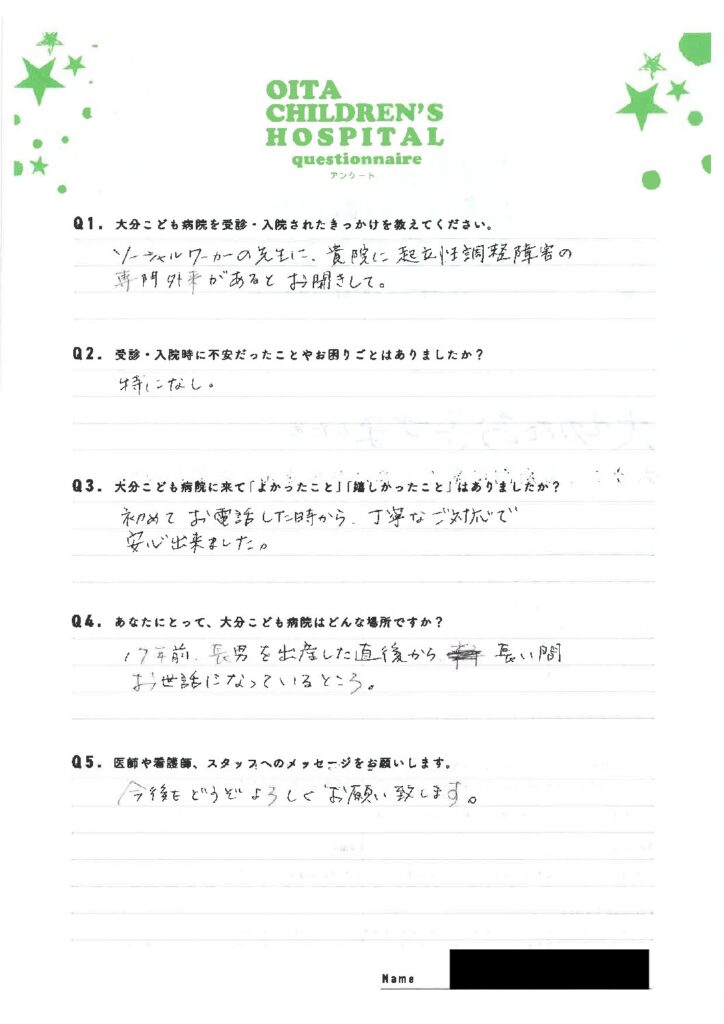 OITA
CHILDREN'S
HOSPITAL
questionnaire
アンケート
Q1. 大分こども病院を受診・入院されたきっかけを教えてください。
ソーシャルワーカーの先生に、貴院に起立性調節障害の
専門外来があるとお聞きして。
Q2. 受診・入院時に不安だったことやお困りごとはありましたか？
特になし。
Q3. 大分こども病院に来て「よかったこと」「嬉しかったこと」はありましたか？
初めてお電話した時から、丁寧なご対応で
安心出来ました。
Q4. あなたにとって、大分こども病院はどんな場所ですか？
17年前、長男を出産した直後から 長い間
お世話になっているところ。
Q5. 医師や看護師、スタッフへのメッセージをお願いします。
今後もどうぞよろしくお願い致します。
Name